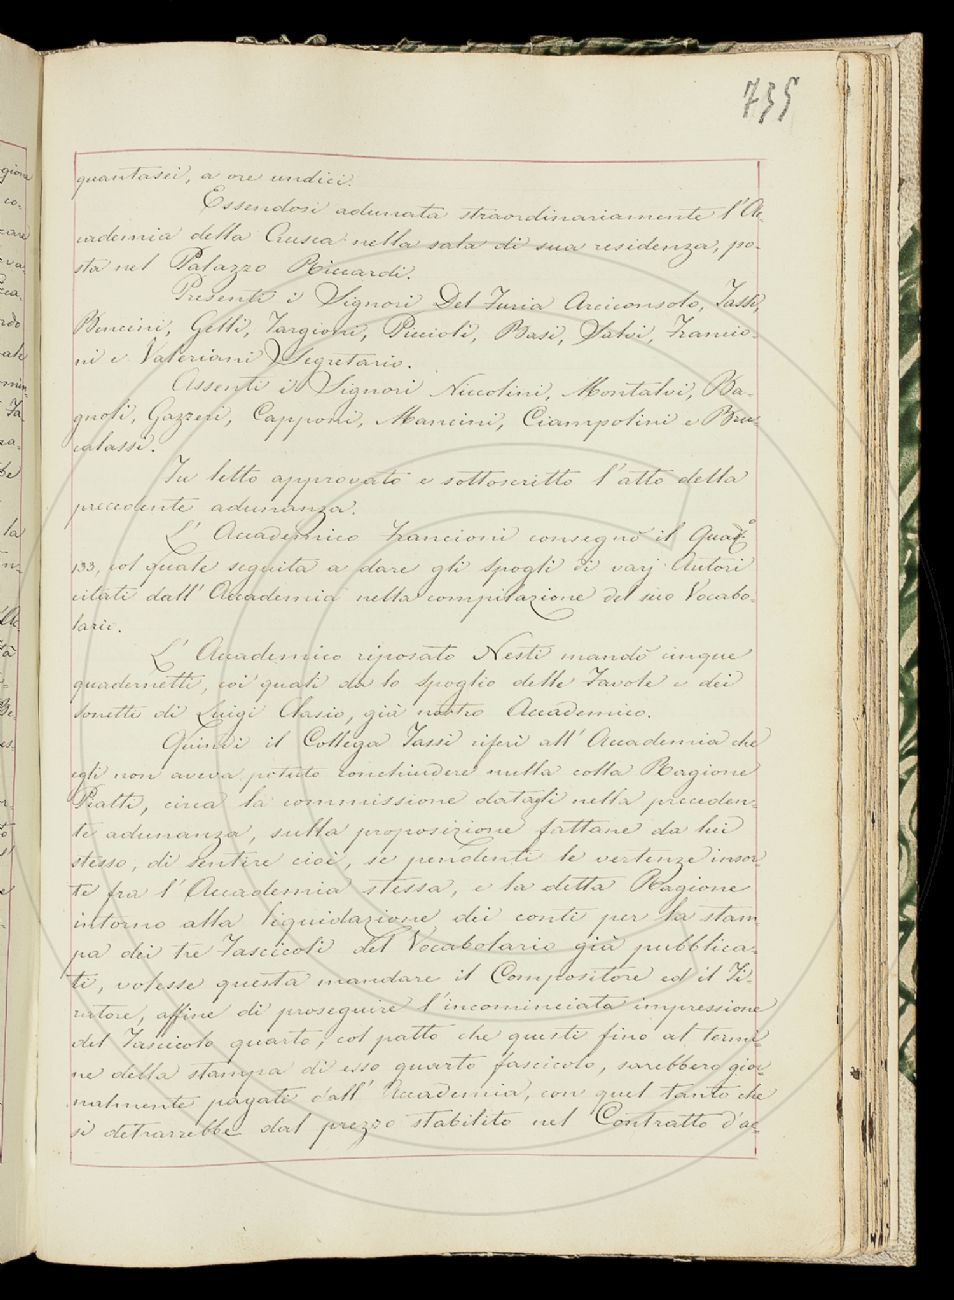 735
quantasei, a ore undici.
Essendosi adunata straordinariamente l'Ac-
cademia della Crusca nella sala di sua residenza, po-
sta nel Palazzo Riccardi.
Presenti i Signori Del Furia Arciconsolo, Tassi,
Bencini, Gelli, Targioni, Piccioli, Basi, Salvi, Francio-
ni e Valeriani Segretario.
Assenti i Signori Niccolini, Montalvi, Ba-
gnoli, Gazzeri, Capponi, Mancini, Ciampolini e Bru-
calassi.
Fu letto approvato e sottoscritto l'atto della
precedente adunanza.
L' Accademico Francioni consegnò il Quad.º
133, col quale seguita a dare gli spogli di varj Autori
citati dall' Accademia nella compilazione del suo Vocabo-
lario.
L' Accademico riposato Nesti mandò cinque
quadernetti, coi quali dà lo spoglio delle Favole e dei
sonetti di Luigi Clasio, già nostro Accademico.
Quindi il Collega Tassi riferì all' Accademia che
egli non aveva potuto conchiudere nulla colla Ragione
Piatti, circa la commissione datagli nella preceden-
te adunanza, sulla proposizione fattane da lui
stesso, di sentire cioè, se pendenti le vertenze insor-
te fra l' Accademia stessa, e la detta Ragione
intorno alla liquidazione dei conti per la stam
pa dei tre Fascicoli del Vocabolario già pubblica-
ti, volesse questa mandare il Compositore ed il Ti-
ratore, affine di proseguire l'incominciata impressione
del Fascicolo quarto, col patto che questi fino al termi-
ne della stampa di esso quarto fascicolo, sarebbero gior-
nalmente pagati dall' Accademia, con quel tanto che
si detrarrebbe dal prezzo stabilito nel Contratto d'ac-